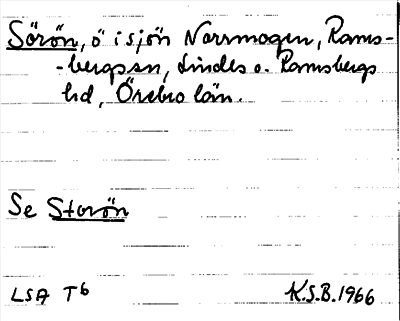 Sörön, ö i sjön Norrmogen, Rams-
-bergs sn, Lindes o. Ramsbergs
hd, Örebro län.
Se Storön
LSA T6 K.S.B. 1966